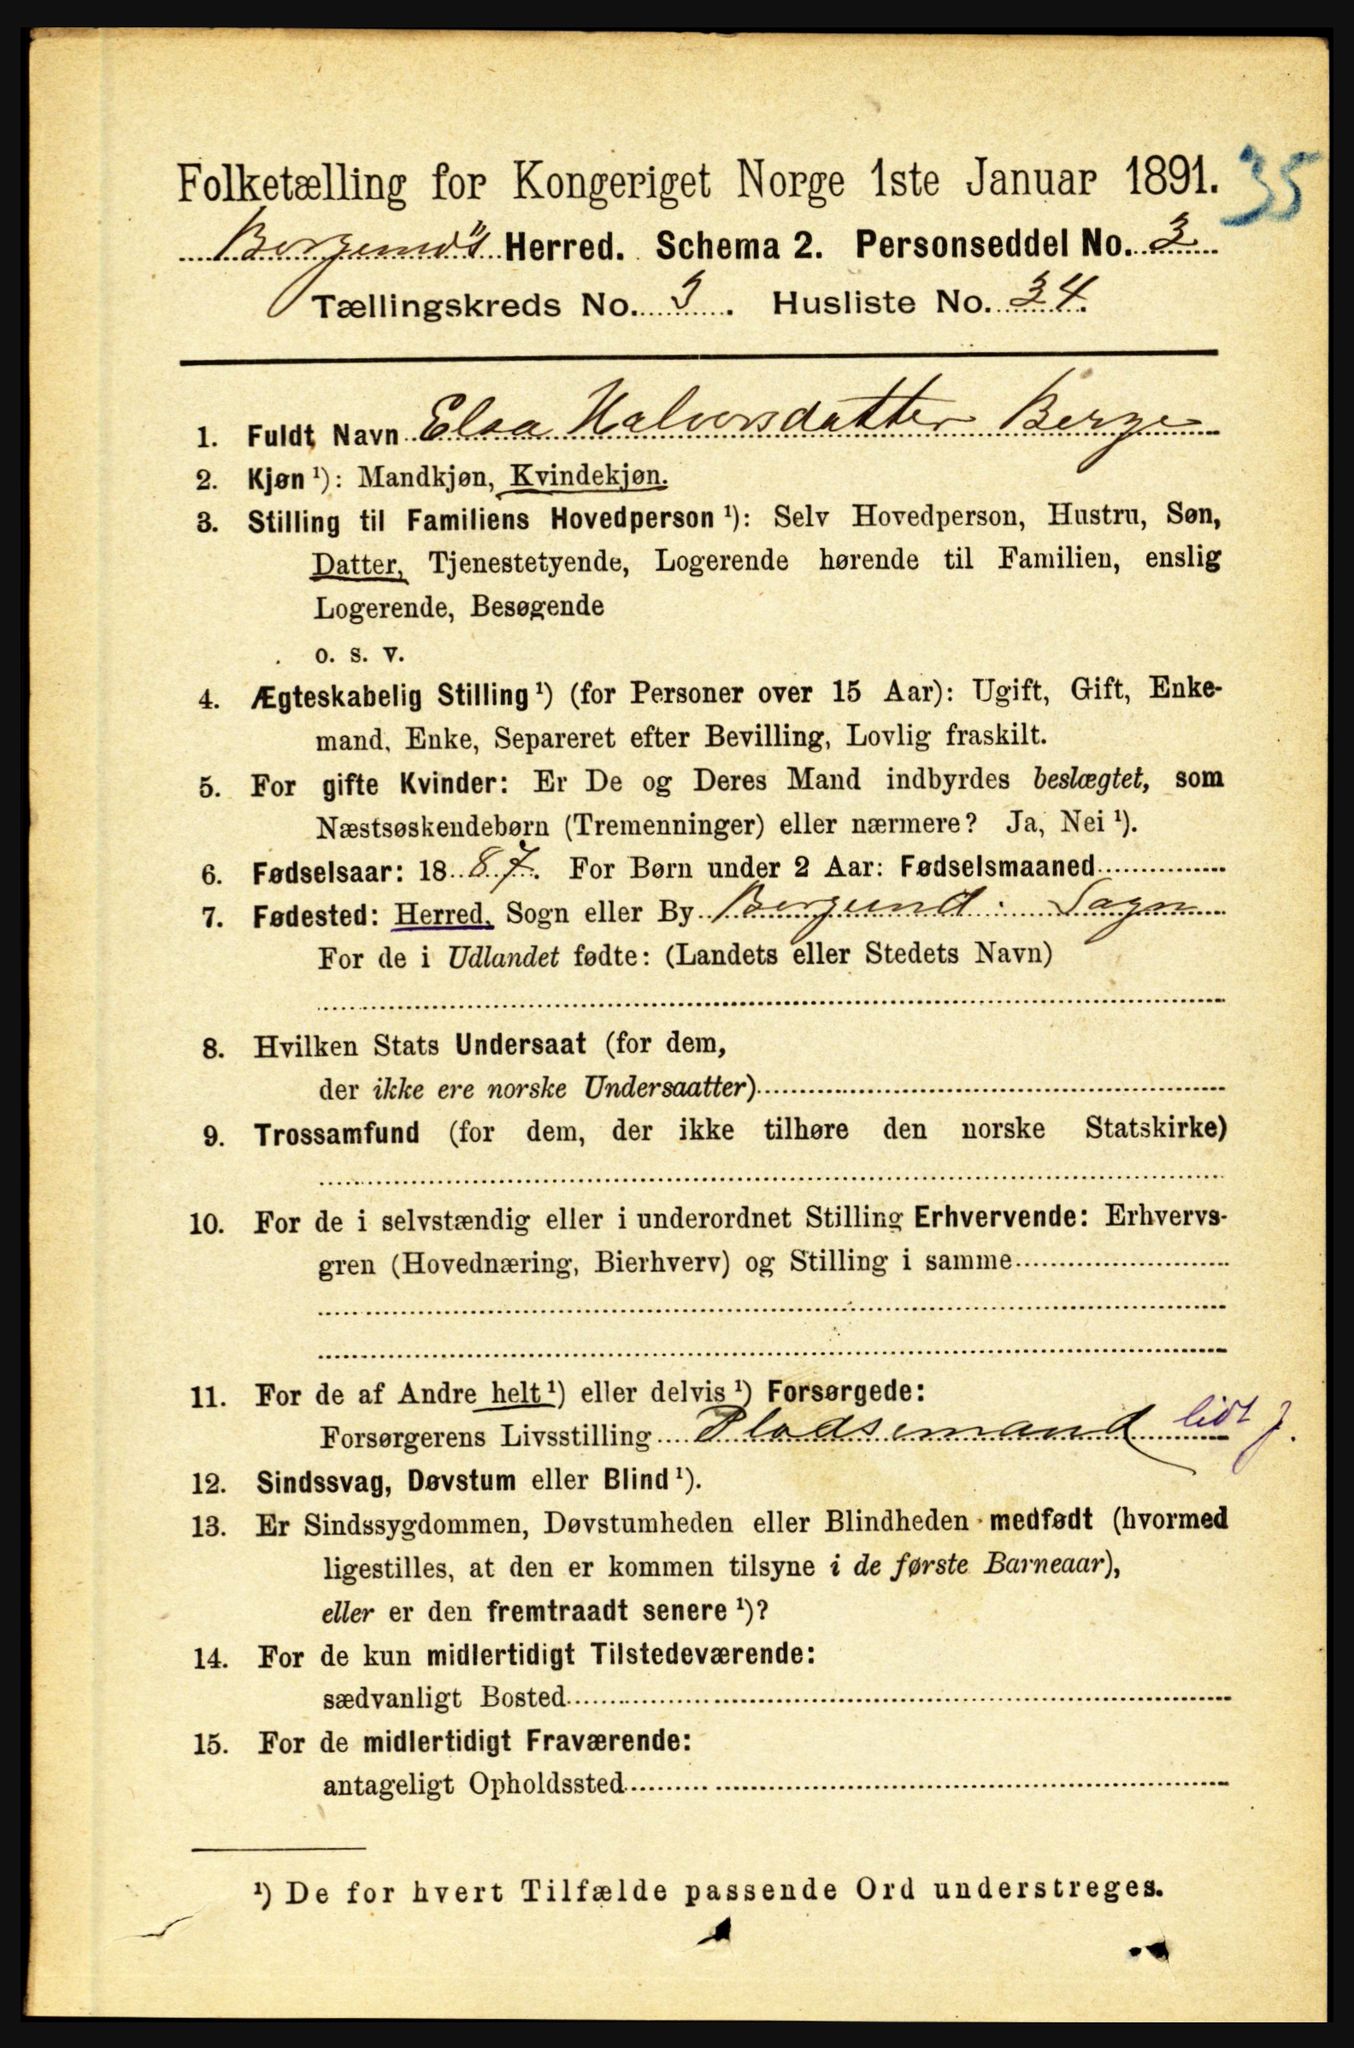 Folketælling for Kongeriget Norge 1ste Januar 1891. 35
Borgund's Herred. Schema 2. Personseddel No. 3.
Tællingskreds No. 3. Husliste No. 34.
1. Fuldt Navn Elsa Halvorsdatter Berge
2. Kjøn ¹): Mandkjøn, Kvindekjøn.
3. Stilling til Familiens Hovedperson ¹): Selv Hovedperson, Hustru, Søn,
Datter, Tjenestetyende, Logerende hørende til Familien, enslig
Logerende, Besøgende
o. s. v.
4. Ægteskabelig Stilling ¹) (for Personer over 15 Aar): Ugift, Gift, Enke-
mand, Enke, Separeret efter Bevilling, Lovlig fraskilt.
5. For gifte Kvinder: Er De og Deres Mand indbyrdes beslægtet, som
Næstsøskendebørn (Tremenninger) eller nærmere? Ja, Nei ¹).
6. Fødselsaar: 1887. For Børn under 2 Aar: Fødselsmaaned
7. Fødested: Herred, Sogn eller By Borgund. Sogn
For de i Udlandet fødte: (Landets eller Stedets Navn)
8. Hvilken Stats Undersaat (for dem,
der ikke ere norske Undersaatter)
9. Trossamfund (for dem, der ikke tilhøre den norske Statskirke)
10. For de i selvstændig eller i underordnet Stilling Erhvervende: Erhvervs-
gren (Hovednæring, Bierhverv) og Stilling i samme
11. For de af Andre helt ¹) eller delvis ¹) Forsørgede:
Forsørgerens Livsstilling Pladsemand lidt j.
12. Sindssvag, Døvstum eller Blind ¹).
13. Er Sindssygdommen, Døvstumheden eller Blindheden medfødt (hvormed
ligestilles, at den er kommen tilsyne i de første Barneaar),
eller er den fremtraadt senere ¹)?
14. For de kun midlertidigt Tilstedeværende:
sædvanligt Bosted
15. For de midlertidigt Fraværende:
antageligt Opholdssted
¹) De for hvert Tilfælde passende Ord understreges.